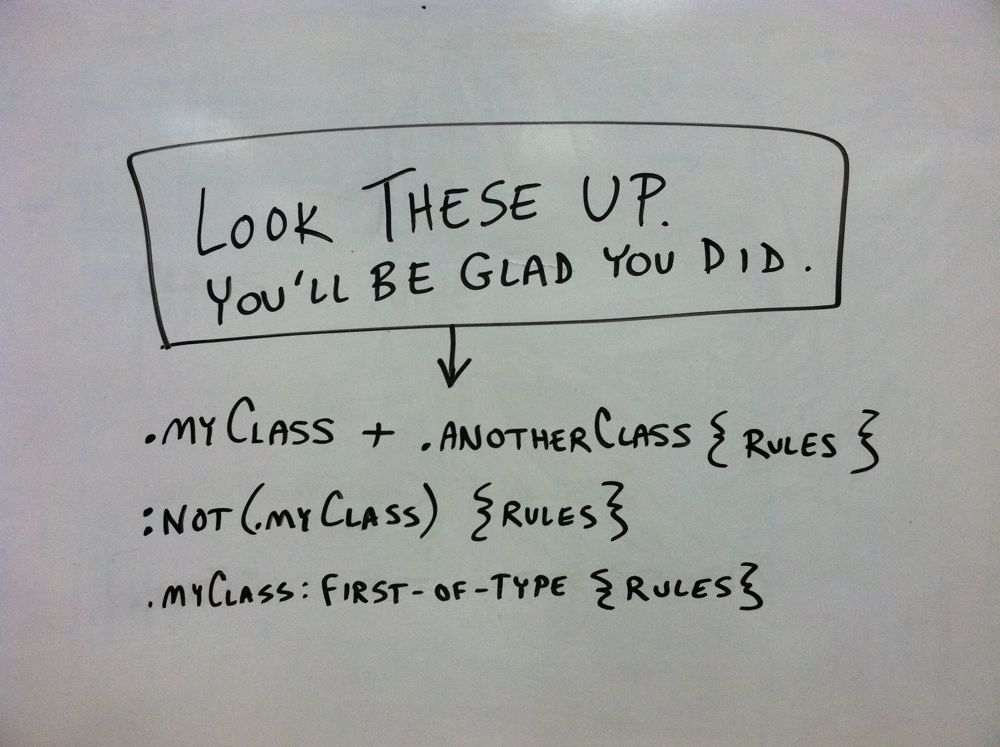 LOOK THESE UP.
YOU'LL BE GLAD YOU DID.
.MYCLASS + .ANOTHERCLASS { RULES }
:NOT(.MYCLASS) {RULES}
.MYCLASS:FIRST-OF-TYPE {RULES}